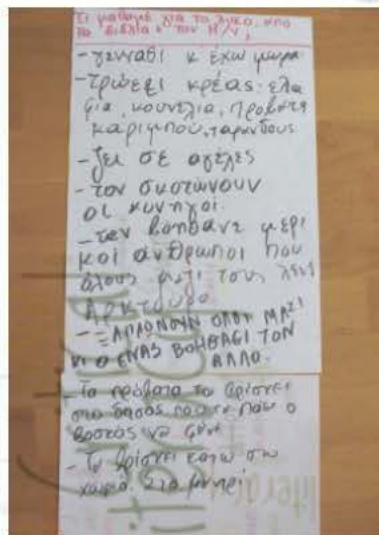 Τι μάθαμε για το λύκο από
τα βιβλία κ τον Η/Υ,
- γενναει κ έχω μωρα
- τρώει κρέας: ελα
φια, κουνελια, προβατα
καριμπού, ταρανδους
- ζει σε αγέλες
- τον σκοτώνουν
οι κυνηγοί.
- τον βοηθανε μερι
κοί ανθρωποι που
όλους μαζι τους λενε
Αρκτουρο
- ΞΑΠΛΩΝΟΥΝ ΟΛΟΙ ΜΑΖΙ
κι Ο ΕΝΑΣ ΒΟΗΘΑΕΙ ΤΟΝ
ΑΛΛΟ.
- Τα πρόβατα τα βρίσκει
στο δασος που τα παει ο
βοσκος να φανε
- Τα βρίσκει κατω στο
χωριό. Στο μαντρί